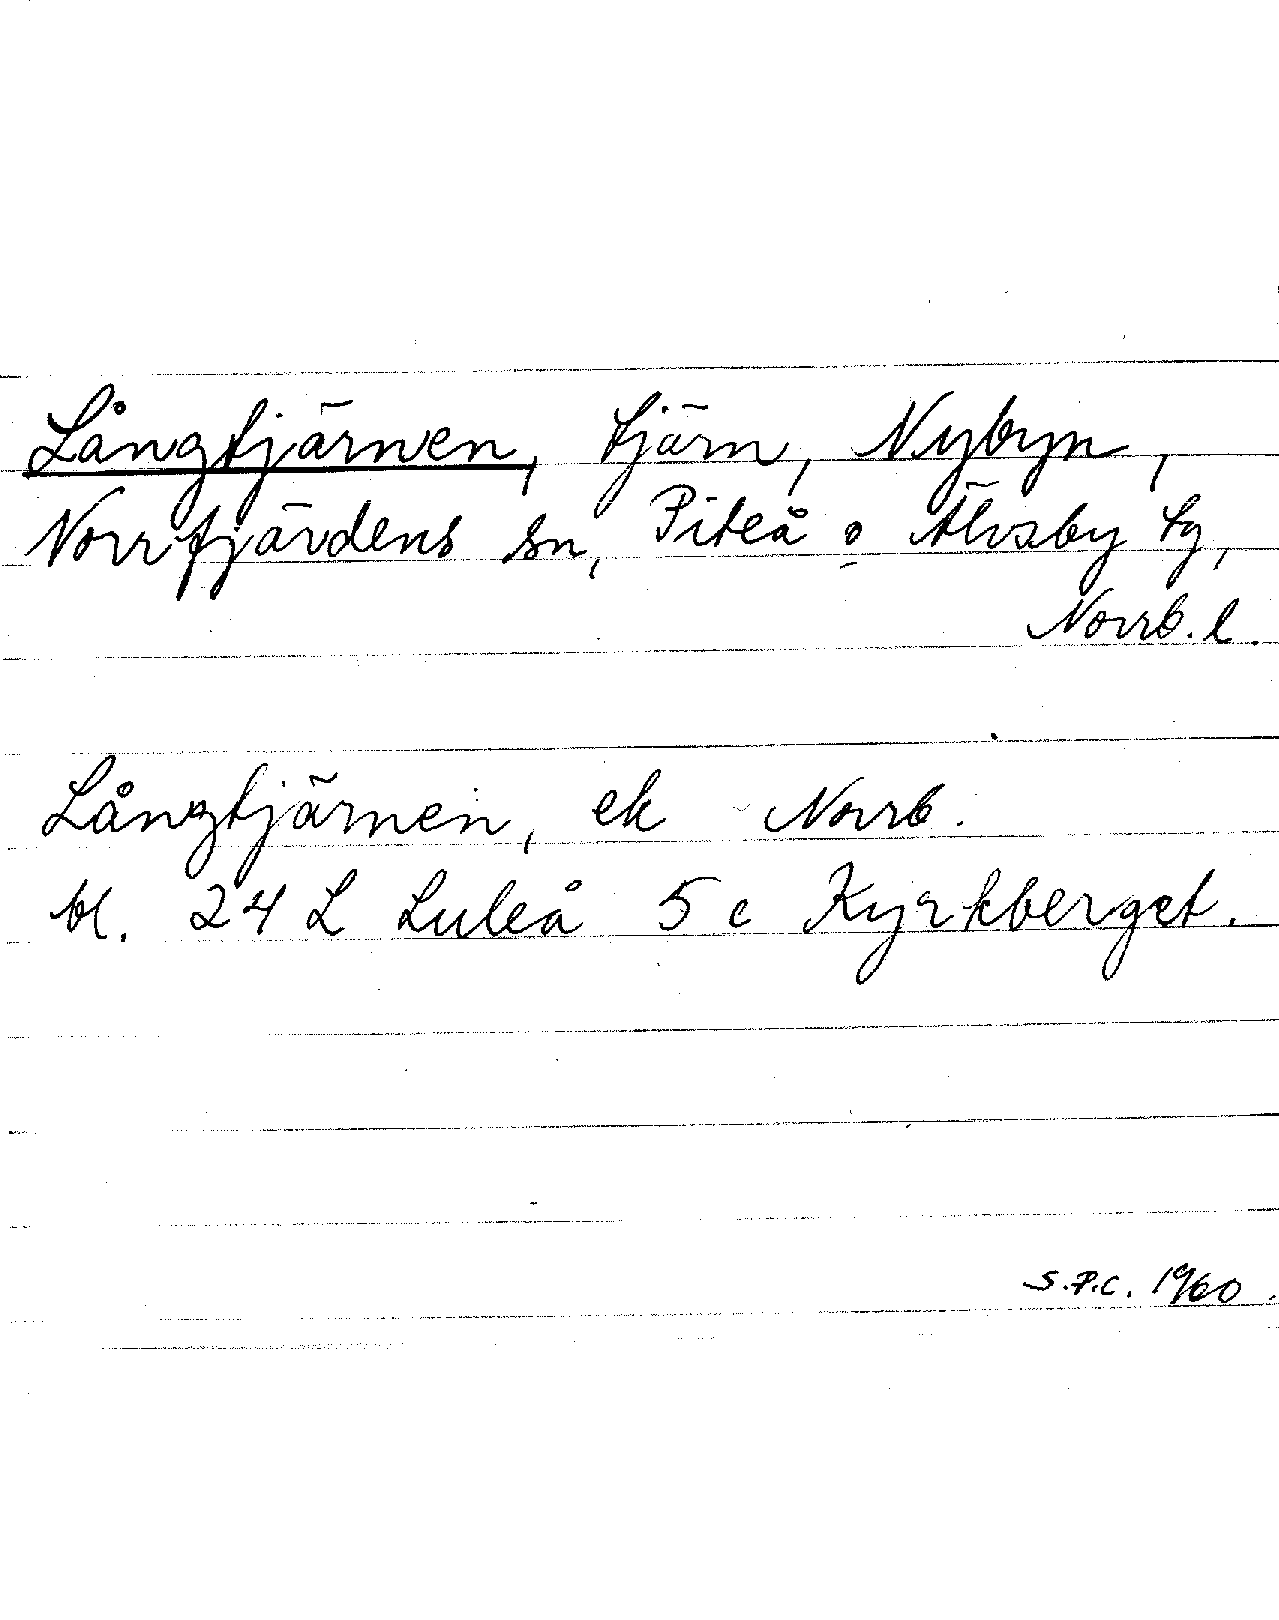 Långtjärnen, tjärn, Nybyn,
Norrfjärdens sn, Piteå o Älvsby tg,
Norrb. l.
Långtjärnen, ek Norrb.
bl. 24 L Luleå 5 c Kyrkberget.
S.P.C. 1960.